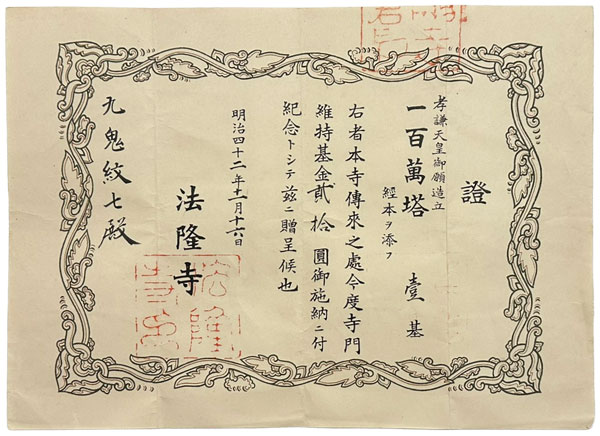 證
孝謙天皇御願造立
一百萬塔 壹基
經本ヲ添フ
右者本寺傳來之處今度寺門
維持基金貳拾圓御施納ニ付
紀念トシテ茲ニ贈呈候也
明治四十二年十一月十六日
法隆寺
法隆寺印
九鬼紋七殿